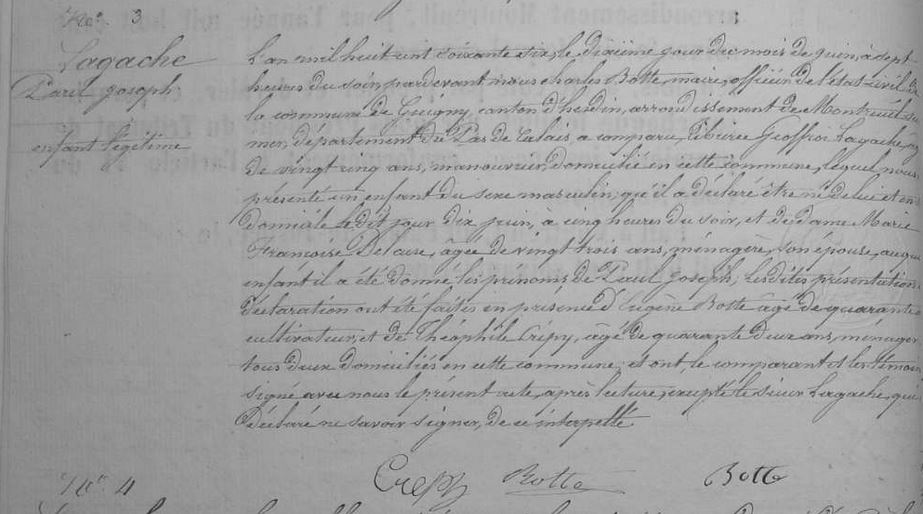 No. 3
Lagache
Paul Joseph
enfant légitime
L'an mil huit cent soixante six, le dixième jour du mois de juin, à sept
heures du soir, pardevant nous Charles Botte, maire, officier de l'état-civil de
la commune de Guigny, canton d'hesdin, arrondissement de Montreuil su
mer, département du Pas de Calais, a comparu, Geoffroi Lagache, ag
de vingt cinq ans, manouvrier, domicilié en cette commune, lequel nous
présenté un enfant du sexe masculin, qu'il a déclaré être né de lui et en
domicile le dit jour dix juin, à cinq heures du soir, et de dame Marie
Françoise âgée de vingt trois ans, ménagère, son épouse, auqu
enfant il a été donné les prénoms de Paul Joseph; les dites présentation
déclaration ont été faites en présence d' Eugène Botte âgé de quarante
cultivateur, et de Théophile Crépy, âgé de quarante deux ans, ménager
tous deux domiciliés en cette commune; et ont, le comparant et les témoi
signé avec nous le présent acte, après lecture, excepté le sieur Lagache, qui
déclaré ne savoir signer, de ce interpellé
Crepy Botte Botte
No. 4